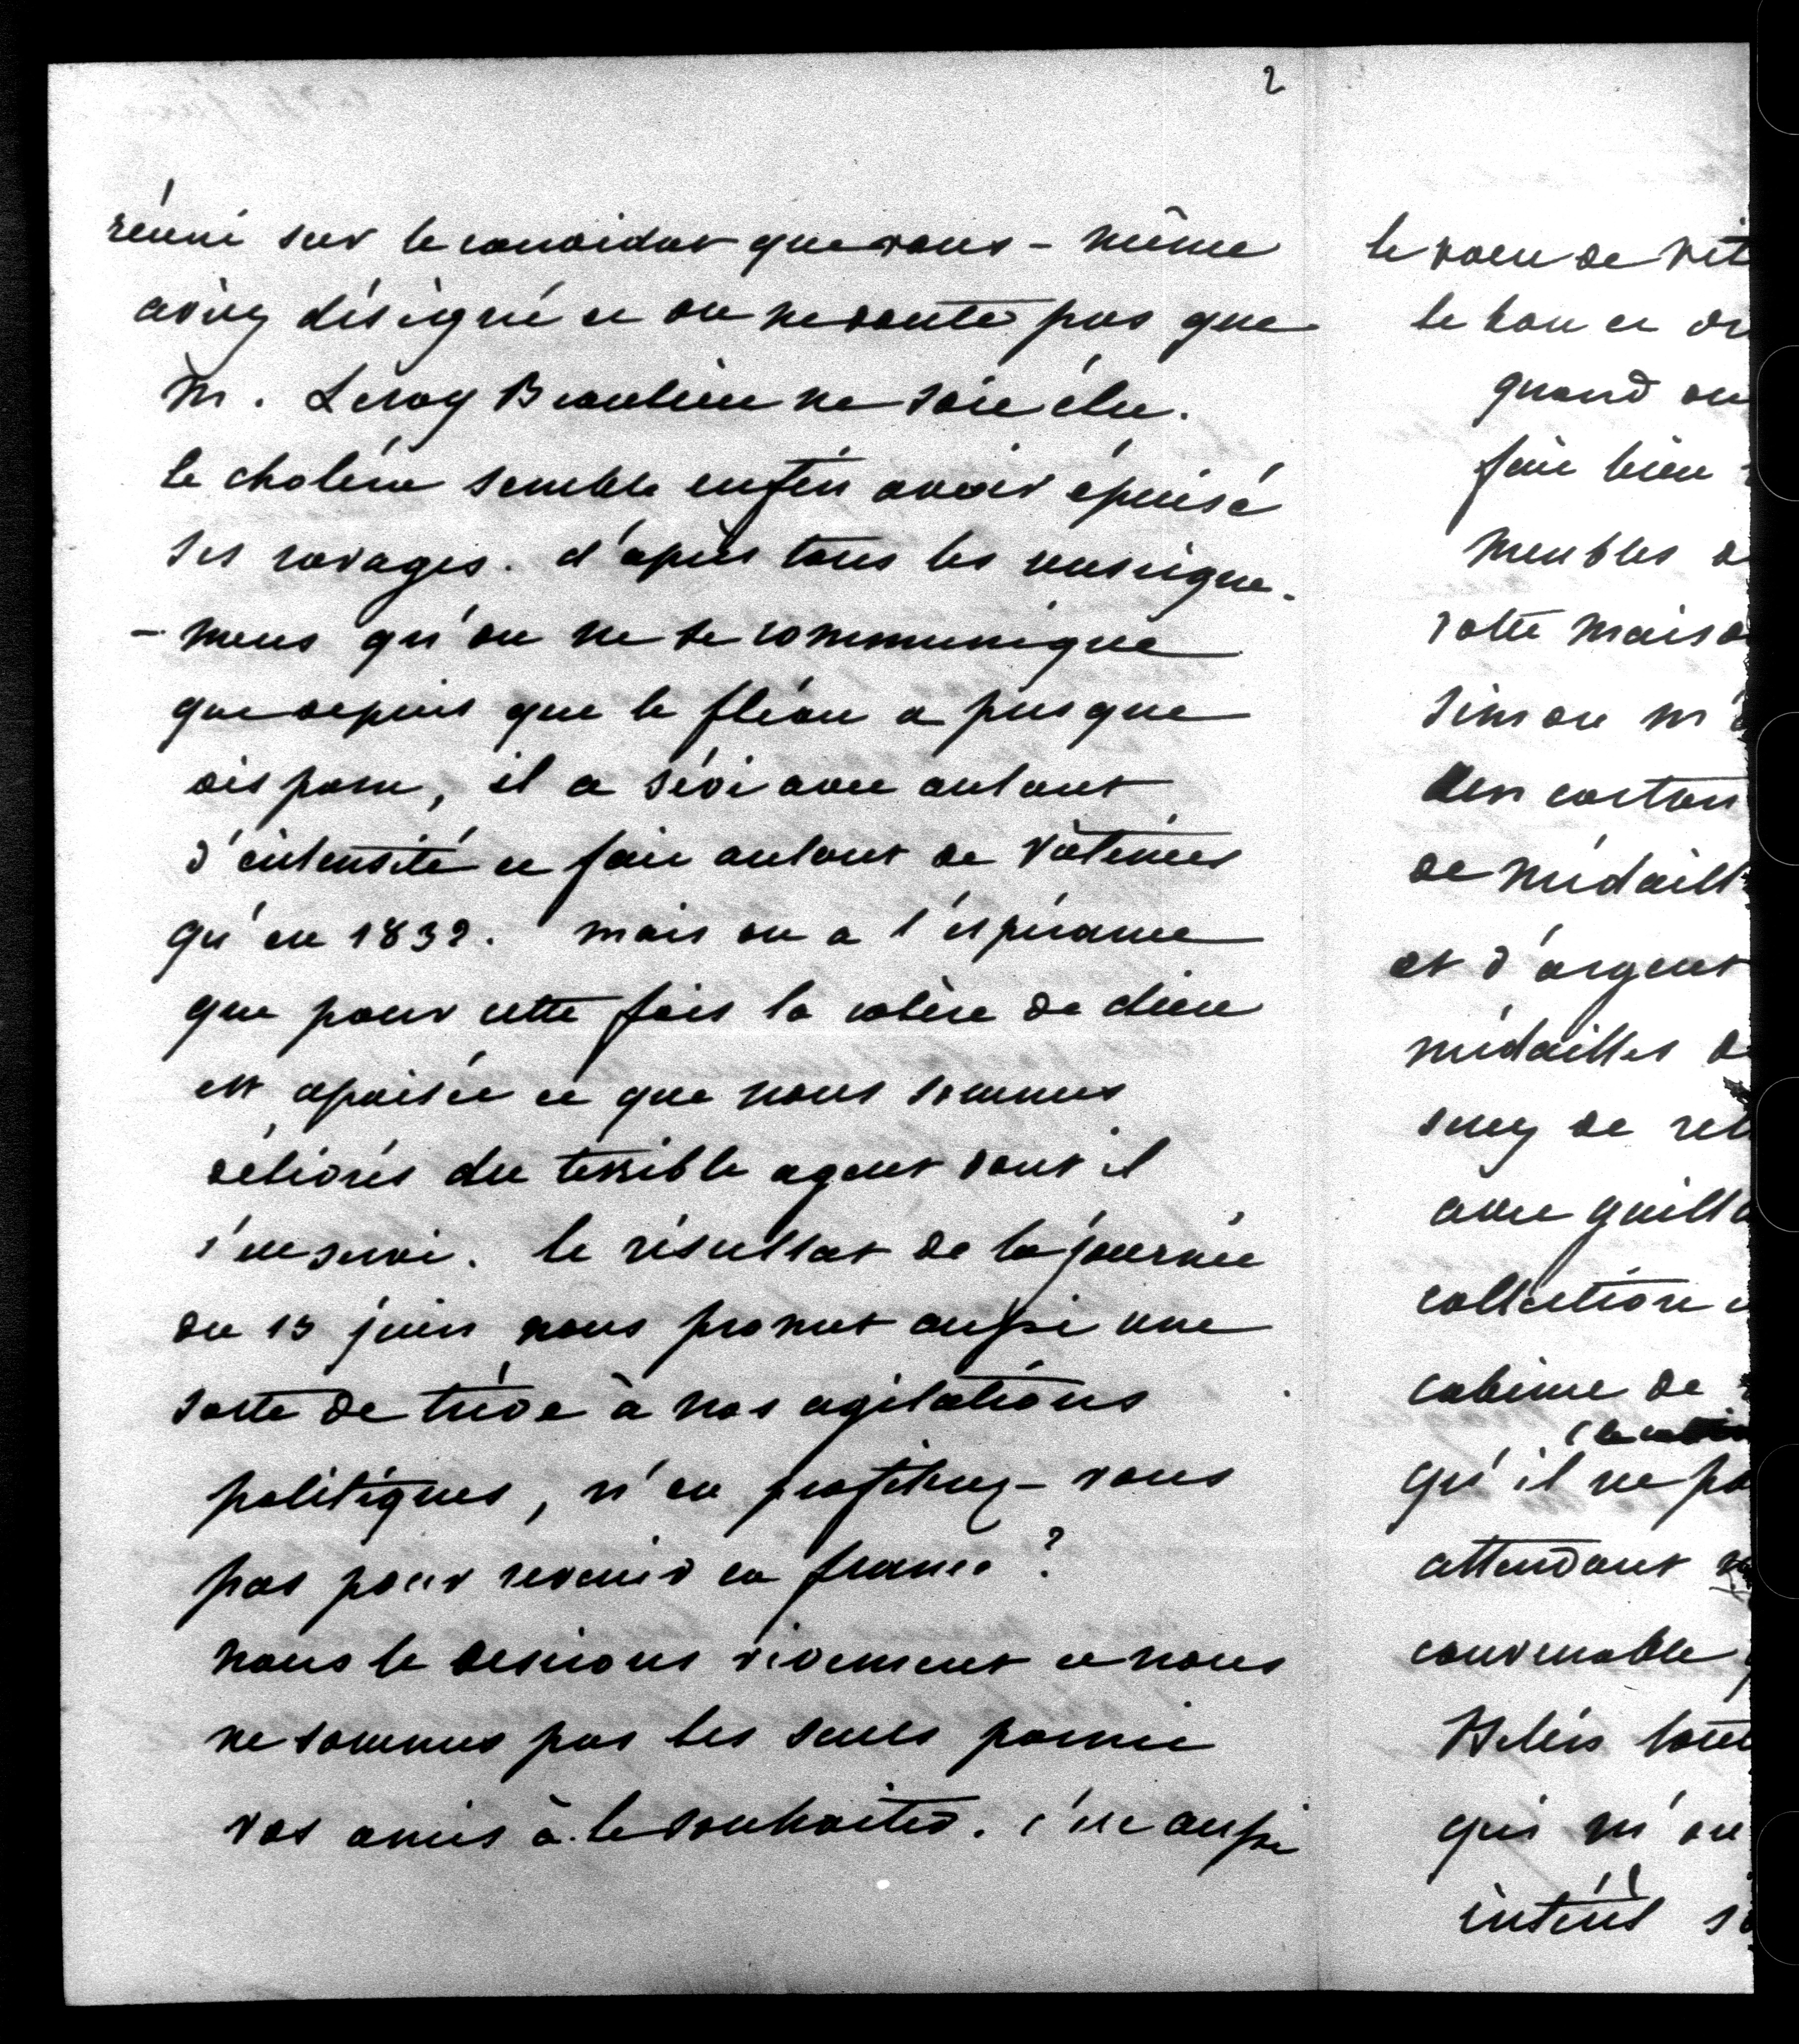 2
réuni sur le candidat que vous-même
aviez désigné et on ne doute pas que
M. Leroy Beaulieu ne soit élu.
le choléra semble enfin avoir épuisé
ses ravages. d'après tous les renseigne-
-mens qu'on ne se communique
que depuis que le fléau a presque
disparu, il a sévi avec autant
d'intensité et fait autant de victimes
qu'en 1832. mais on a l'espérance
que pour cette fois la colère de dieu
est apaisée et que nous sommes
délivrés du terrible agent dont il
s'est servi. le résultat de la journée
du 13 juin nous promet aussi une
sorte de trève à nos agitations
politiques, n'en profiterez-vous
pas pour revenir en france ?
nous le desirons vivement et nous
ne sommes pas les seuls parmi
vos amis à le souhaiter. c'est aussi
le voeu de
le bon et
quand on
fait bien
meubles
votre maiso
Simon m'
des carton
de médaill
et d'argent
médailles
serez de
avec
collection
cabinet de
qu'il ne
attendant
convenable
tout
qui m'on
intérêt